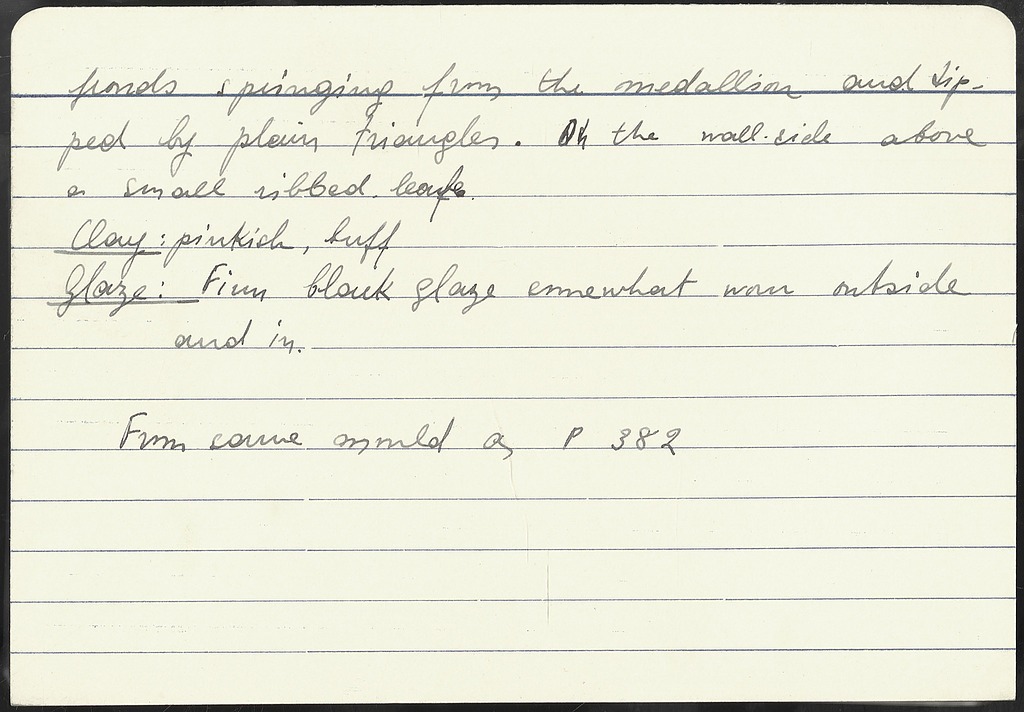 fronds springing from the medallion and tip-
ped by plain triangles. On the wall-side above
a small ribbed leaf.
Clay: pinkish, buff
Glaze: Firm black glaze somewhat worn outside
and in.
From same mould as P 382